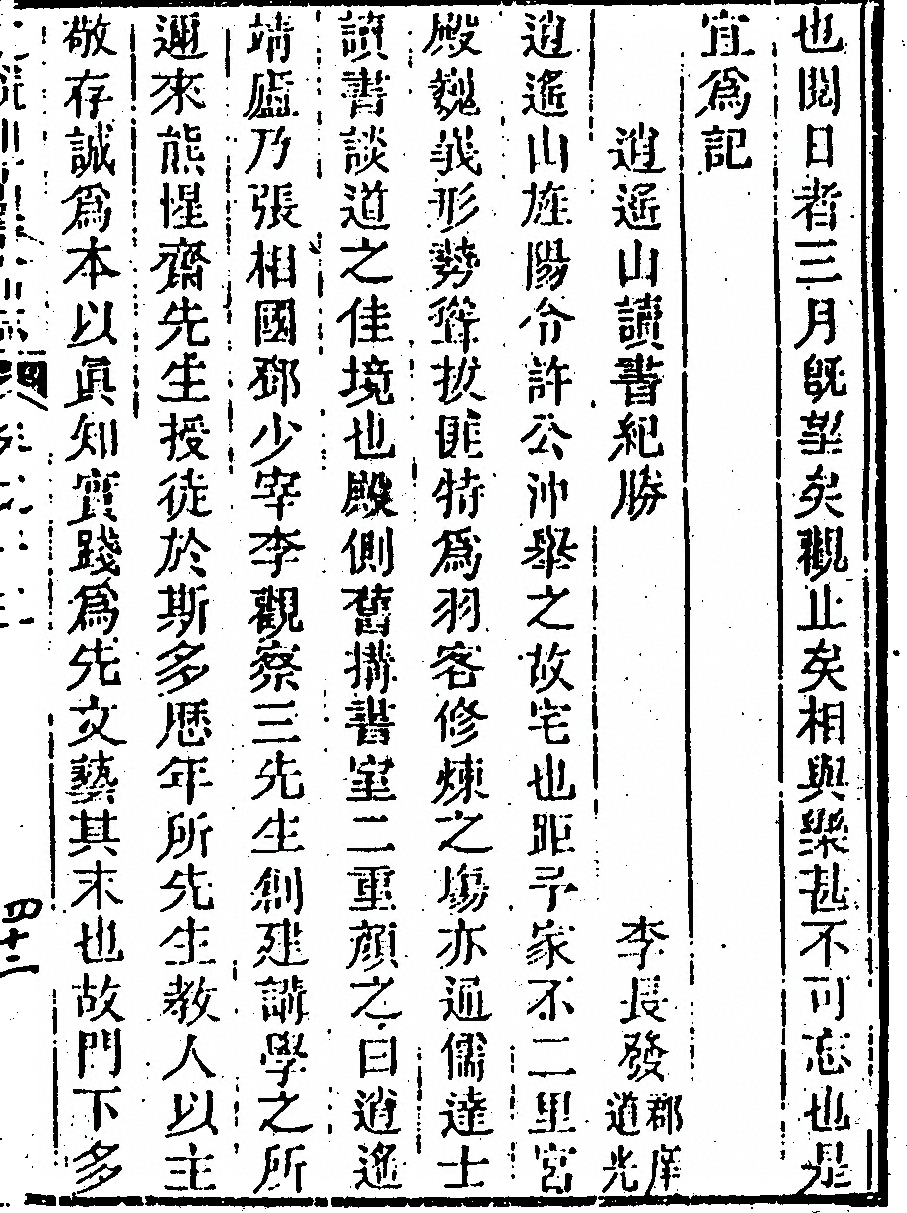 也閱日者三月旣望矣觀止矣相與樂甚不可忘也是
宜爲記
逍遙山讀書紀勝 李長發 郡庠道光
逍遙山旌陽令許公沖舉之故宅也距予家不二里宮
殿巍峩形勢聳拔匪特爲羽客修煉之塲亦通儒達士
讀書談道之佳境也殿側舊搆書室二重顏之曰逍遙
靖廬乃張相國鄧少宰李觀察三先生創建講學之所
邇來熊惺齋先生授徒於斯多歷年所先生教人以主
敬存誠爲本以眞知實踐爲先文藝其末也故門下多
四十二